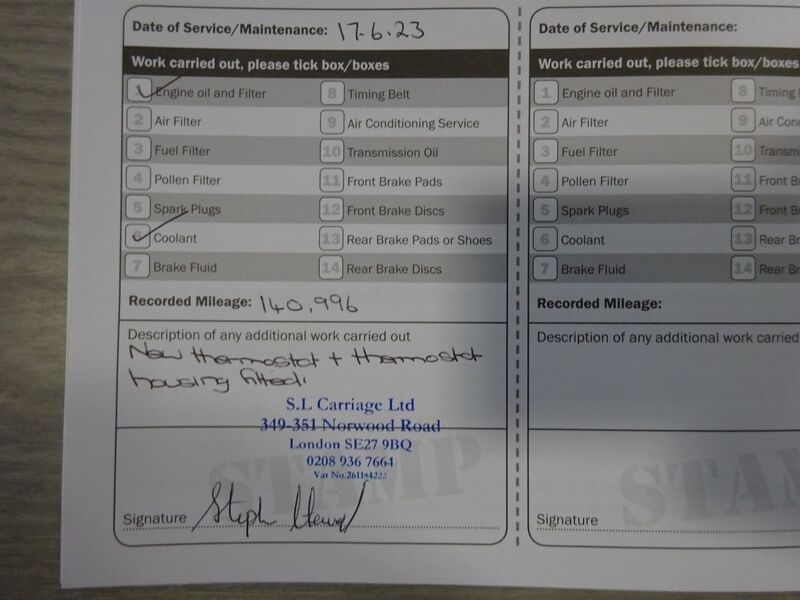 Date of Service/Maintenance: 17.6.23
Work carried out, please tick box/boxes
1 Engine oil and Filter 8 Timing Belt
2 Air Filter 9 Air Conditioning Service
3 Fuel Filter 10 Transmission Oil
4 Pollen Filter 11 Front Brake Pads
5 Spark Plugs 12 Front Brake Discs
6 Coolant 13 Rear Brake Pads or Shoes
7 Brake Fluid 14 Rear Brake Discs
Recorded Mileage: 140,996
Description of any additional work carried out
New thermostat + thermostat
housing fitted.
S.L Carriage Ltd
349-351 Norwood Road
London SE27 9BQ
0208 936 7664
Vat No.
STAMP
Signature Steph
Date of Service/Maintenance:
Work carried out, please tick box/boxes
1 Engine oil and Filter 8 Timing
2 Air Filter 9 Air
3 Fuel Filter 10
4 Pollen Filter 11 Front
5 Spark Plugs 12 Front
6 Coolant 13 Rear
7 Brake Fluid 14 Rear
Recorded Mileage:
Description of any additional work carried
STA
Signature